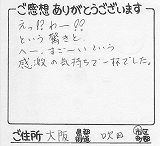 ご感想ありがとうございます
えっ!?わー!!
という驚きと
へー、すごーいという
感激の気持ちで一杯でした。
ご住所 大阪 都道府県 吹田 市区町村